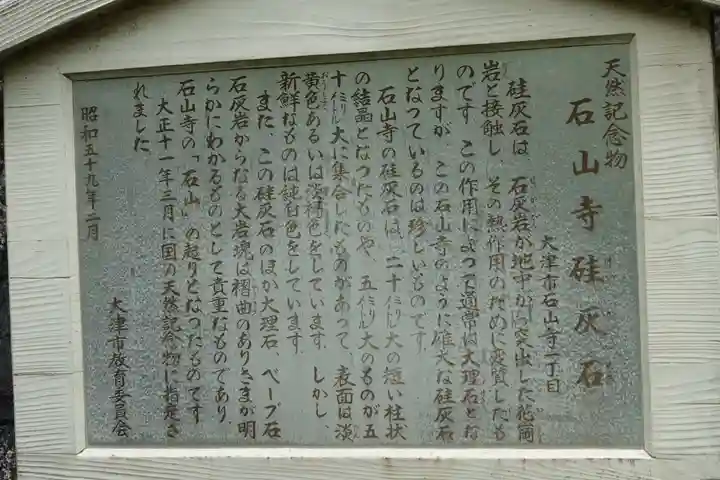 天然記念物
石山寺硅灰石
大津市石山寺一丁目
硅灰石は、石灰岩が地中から突出した花崗
岩と接触し、その熱作用のために変質したも
のです。この作用によって通常は大理石とな
りますが、この石山寺のように雄大な硅灰石
となっているのは珍しいものです。
石山寺の硅灰石は、二十ミリ大の短い柱状
の結晶となったものや、五ミリ大のものが五
十ミリ大に集合したものがあって、表面は淡
黄色あるいは淡褐色をしています。しかし、
新鮮なものは純白色をしています。
また、この硅灰石のほか大理石、ベーブ石
石灰岩からなる大岩塊は褶曲のありさまが明
らかにわかるものとして貴重なものであり、
石山寺の「石山」の起りとなったものです。
大正十一年三月に国の天然記念物に指定さ
れました。
昭和五十九年二月
大津市教育委員会